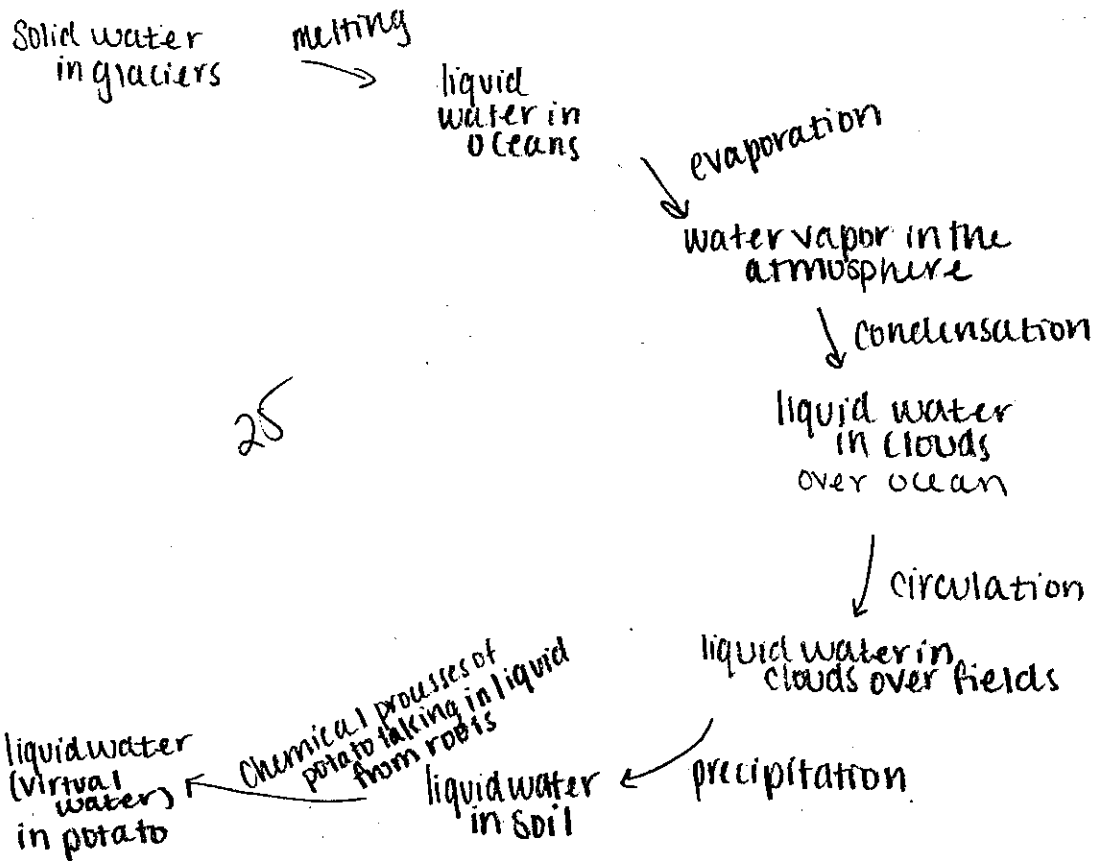 Solid water
in glaciers
melting
liquid
water in
oceans
evaporation
water vapor in the
atmosphere
condensation
liquid water
in clouds
over ocean
25
circulation
liquid water in
clouds over fields
precipitation
liquid water
in soil
Chemical processes of
potato taking in liquid
from roots
liquid water
(virtual
water)
in potato